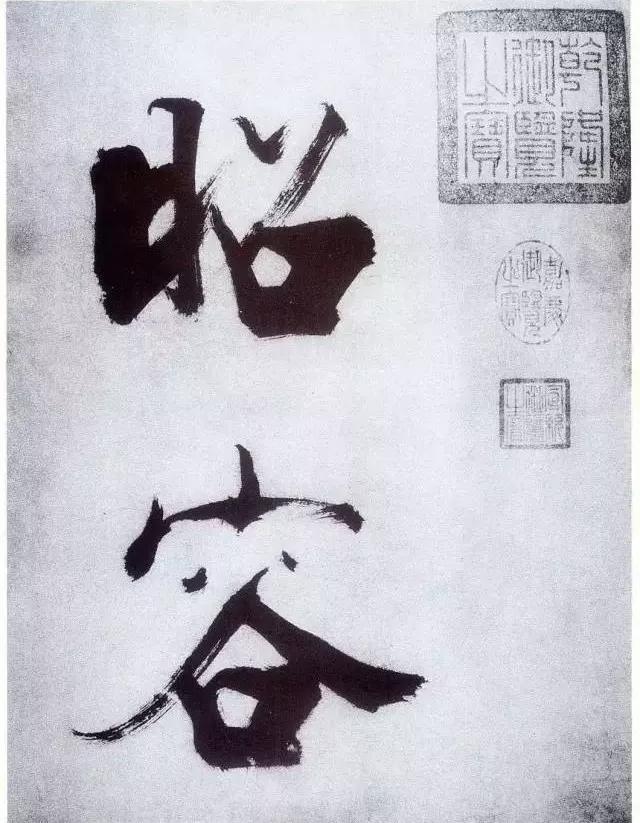 昭容
乾隆御覽之寶
嘉慶御覽之寶
宣統御覽之寶